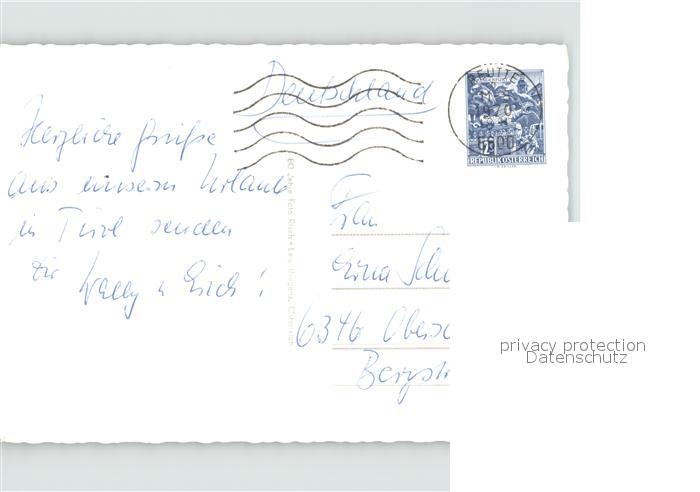 Deutschland
Herzliche Grüße
aus unserem Urlaub
in Tirol senden
Dir Wally u Erich !
Frau
Erna Sch
6346 Obers
Bergstr
REPUBLIK ÖSTERREICH
REUTTE
6600
privacy protection
Datenschutz